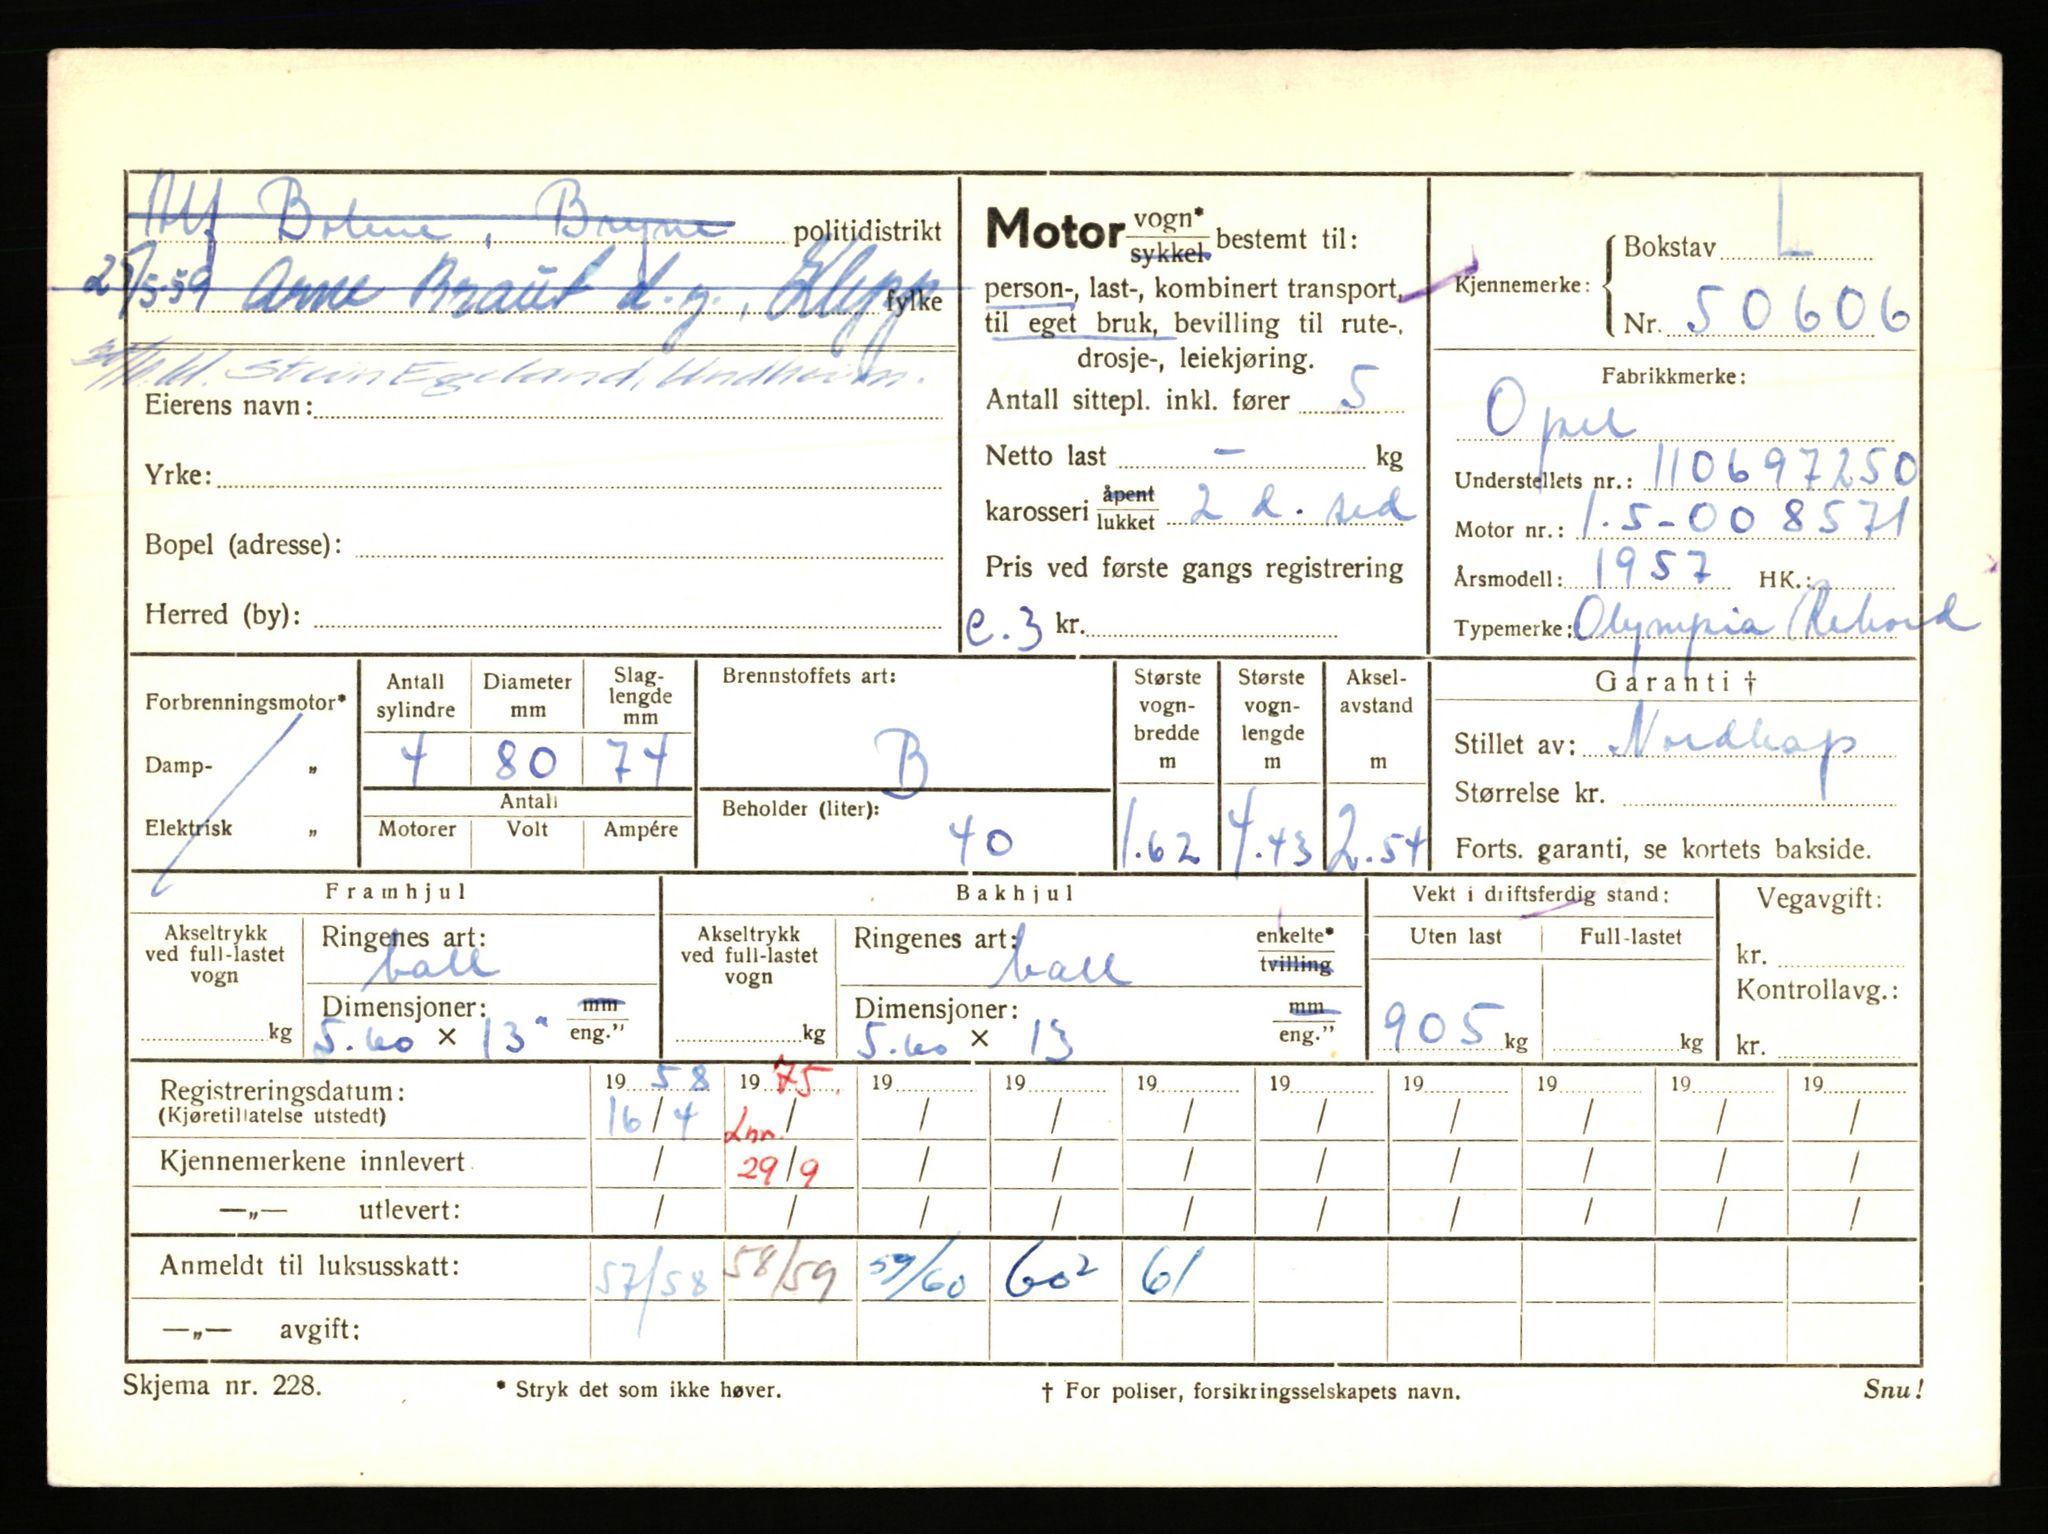 Alf Bolme, Bryne politidistrikt
2 /5-59 Arne Braut d.y., Klepp fylke
Stein Egeland, Undheim.
Eierens navn:
Yrke:
Bopel (adresse):
Herred (by):
Motor vogn* sykkel bestemt til:
person-, last-, kombinert transport,
til eget bruk, bevilling til rute-,
drosje-, leiekjøring.
Antall sittepl. inkl. fører 5
Netto last – kg
karosseri åpent lukket 2 d. sed
Pris ved første gangs registrering
e.3 kr.
Kjennemerke: { Bokstav L
Nr. 50606
Fabrikkmerke:
Opel
Understellets nr.: 110697250
Motor nr.: 1.5-008571
Årsmodell: 1957 HK.:
Typemerke: Olympia Rekord
Forbrenningsmotor*
Damp- „
Elektrisk „
Antall sylindre
4
Diameter mm
80
Slag-lengde mm
74
Antall
Motorer Volt Ampére
Brennstoffets art:
B
Beholder (liter):
40
Største vogn-bredde m
1.62
Største vogn-lengde m
4.43
Aksel-avstand m
2.54
Garanti †
Stillet av: Nordkap
Størrelse kr.
Forts. garanti, se kortets bakside.
Framhjul
Akseltrykk ved full-lastet vogn
kg
Ringenes art:
ball
Dimensjoner: mm eng.”
5.60 × 13"
Bakhjul
Akseltrykk ved full-lastet vogn
kg
Ringenes art: enkelte* tvilling
ball
Dimensjoner: mm eng.”
5.60 × 13
Vekt i driftsferdig stand:
Uten last Full-lastet
905 kg kg
Vegavgift:
kr.
Kontrollavg.:
kr.
Registreringsdatum: 19 58 19 75 19 19 19 19 19 19 19 19
(Kjøretillatelse utstedt) 16/4 / / / / / / / / /
Lnn.
Kjennemerkene innlevert / 29/9 / / / / / / / /
—„— utlevert: / / / / / / / / / /
Anmeldt til luksusskatt: 57/58 58/59 59/60 60² 61
—„— avgift:
Skjema nr. 228. * Stryk det som ikke høver. † For poliser, forsikringsselskapets navn. Snu!